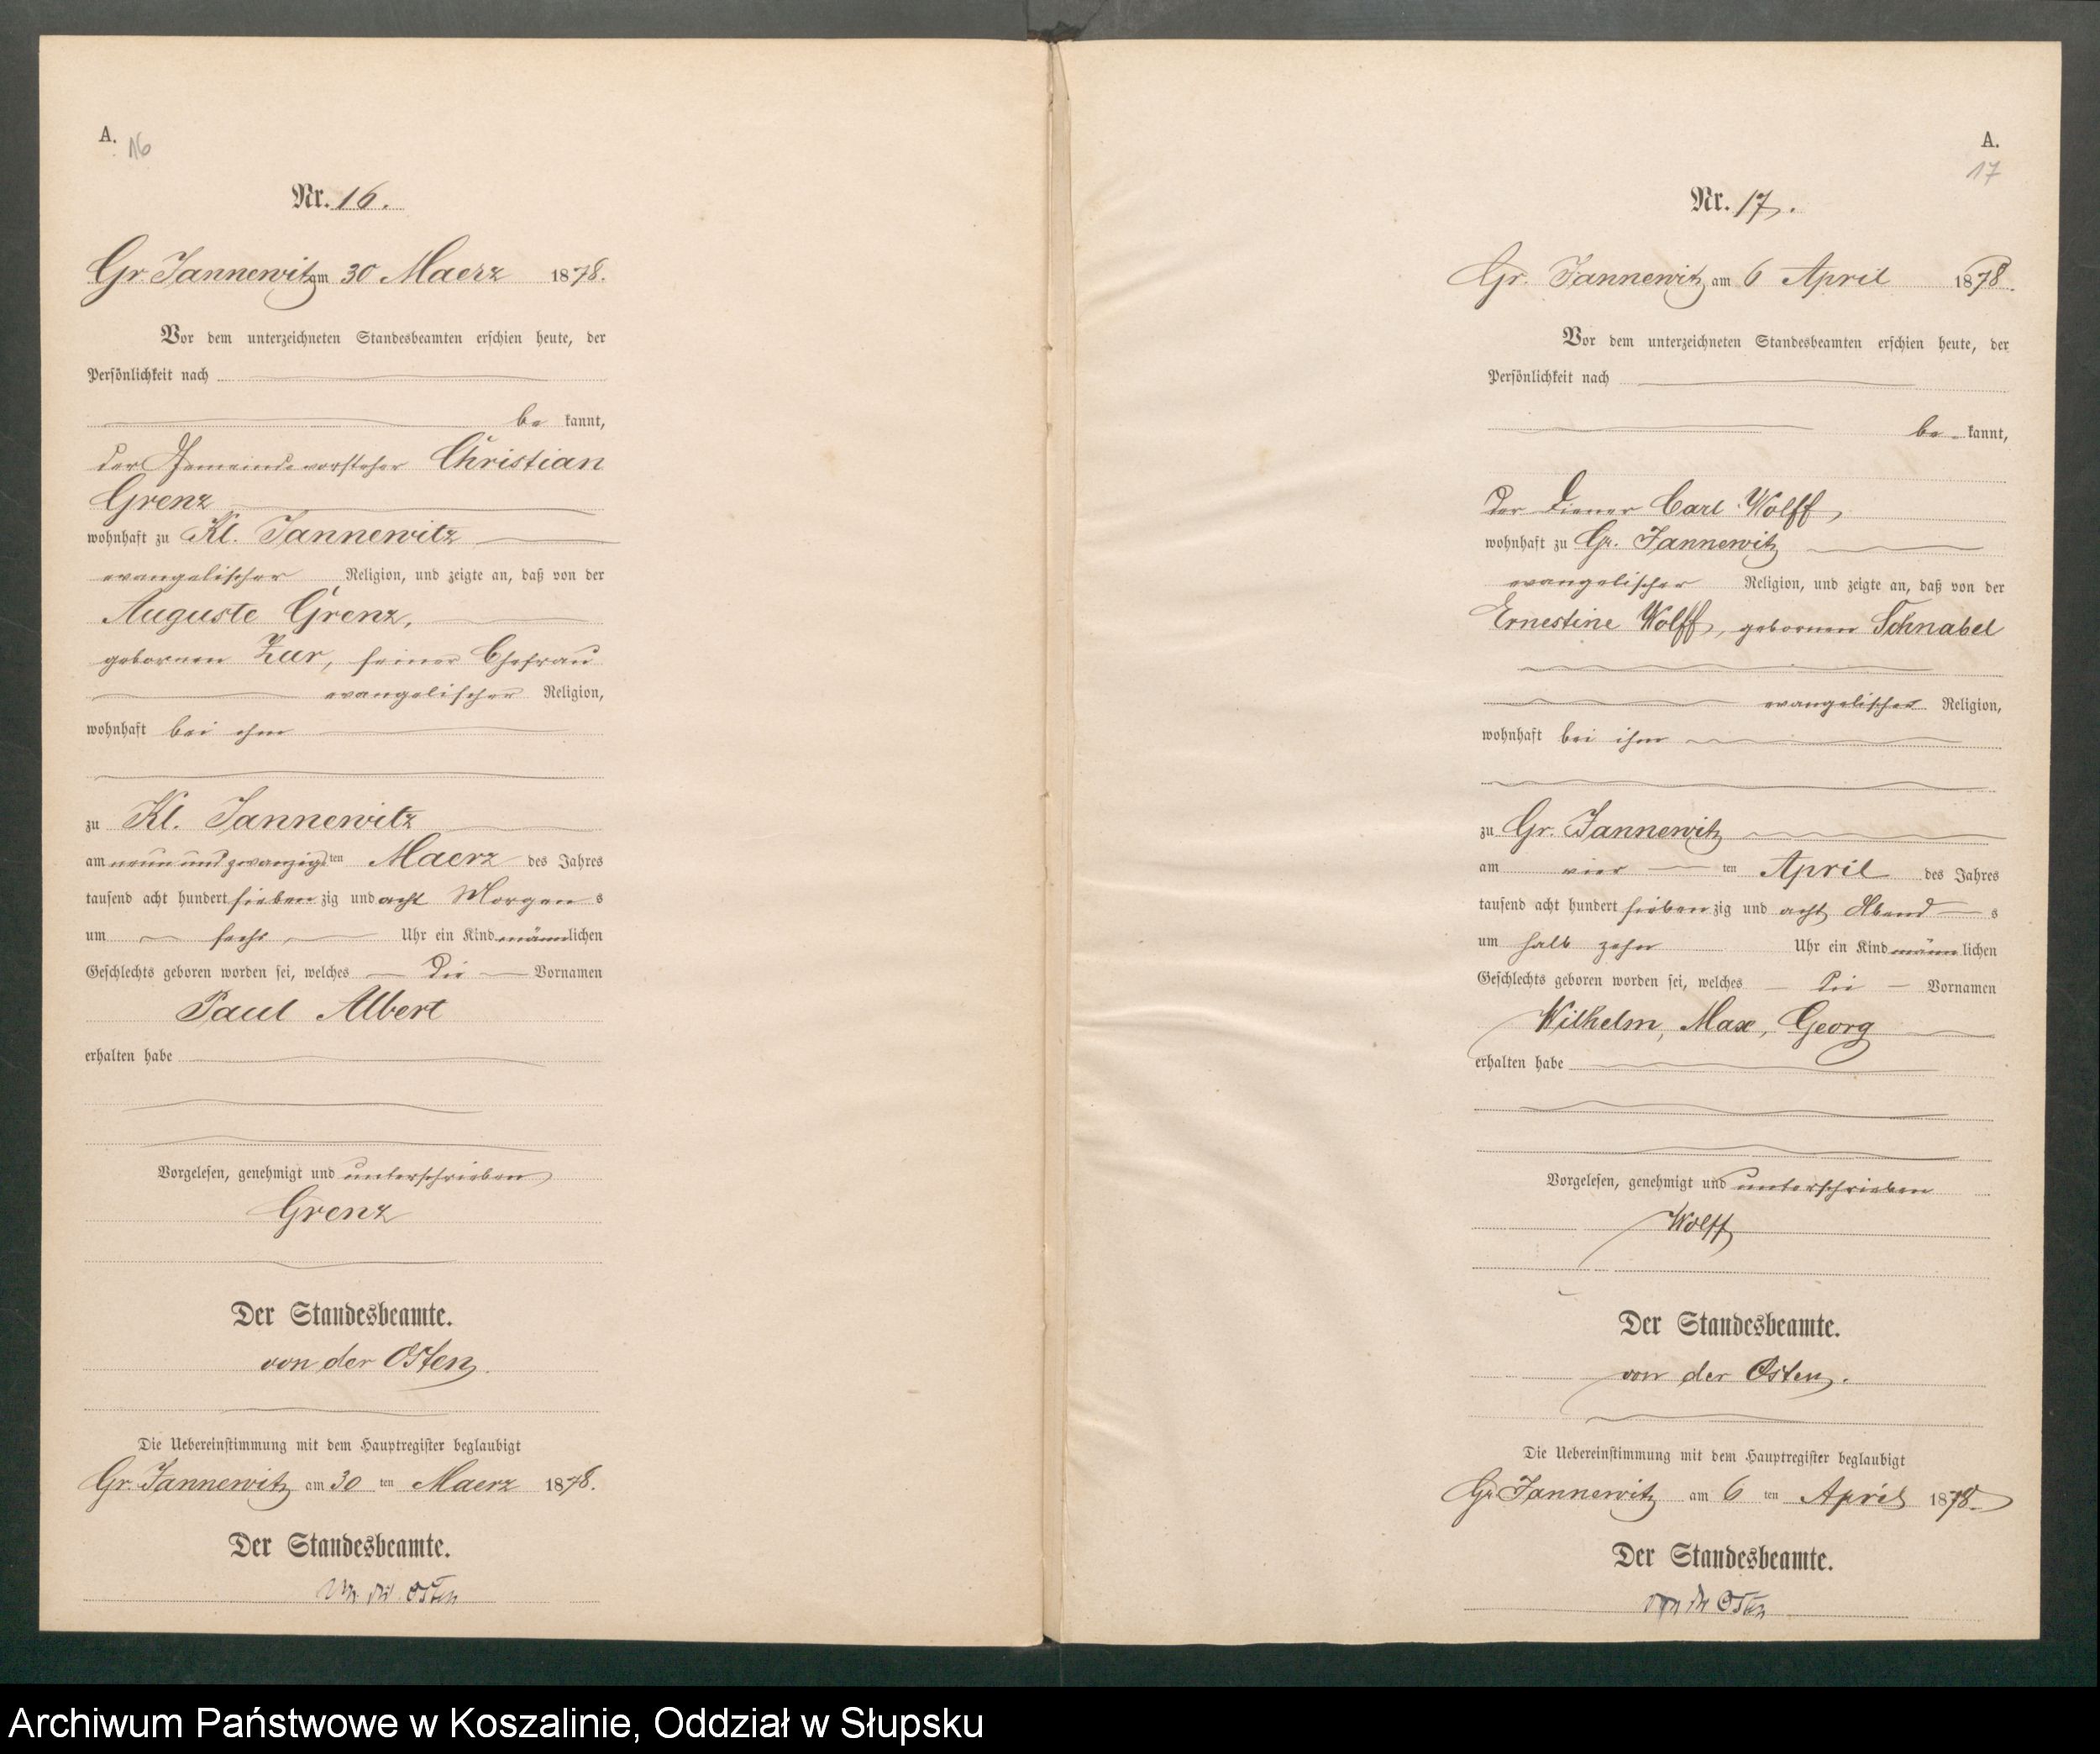 A.
16
Nr. 16.
Gr. Jannewitz am 30 Maerz 1878.
Vor dem unterzeichneten Standesbeamten erschien heute, der
Persönlichkeit nach
be kannt,
der Gemeindevorsteher Christian
Grenz
wohnhaft zu Kl. Jannewitz
evangelischer Religion, und zeigte an, daß von der
Auguste Grenz,
gebornen Zur, seiner Ehefrau
evangelischer Religion,
wohnhaft bei ihm
zu Kl. Jannewitz
am neun und zwanzigsten Maerz des Jahres
tausend acht hundert sieben zig und acht Morgens
um sechs Uhr ein Kind männlichen
Geschlechts geboren worden sei, welches die Vornamen
Paul Albert
erhalten habe
Vorgelesen, genehmigt und unterschrieben
Grenz
Der Standesbeamte.
von der Osten.
Die Uebereinstimmung mit dem Hauptregister beglaubigt
Gr. Jannewitz am 30 ten Maerz 1878.
Der Standesbeamte.
von der Osten
A.
17
Nr. 17.
Gr. Jannewitz am 6 April 1878.
Vor dem unterzeichneten Standesbeamten erschien heute, der
Persönlichkeit nach
be kannt,
der Diener Carl Wolff,
wohnhaft zu Gr. Jannewitz
evangelischer Religion, und zeigte an, daß von der
Ernestine Wolff, gebornen Schnabel
evangelischer Religion,
wohnhaft bei ihm
zu Gr. Jannewitz
am vier ten April des Jahres
tausend acht hundert sieben zig und acht Abend s
um halb zehn Uhr ein Kind männ lichen
Geschlechts geboren worden sei, welches die Vornamen
Wilhelm, Max, Georg
erhalten habe
Vorgelesen, genehmigt und unterschrieben
Wolff
Der Standesbeamte.
von der Osten.
Die Uebereinstimmung mit dem Hauptregister beglaubigt
Gr. Jannewitz am 6 ten April 1878.
Der Standesbeamte.
von der Osten
Archiwum Państwowe w Koszalinie, Oddział w Słupsku